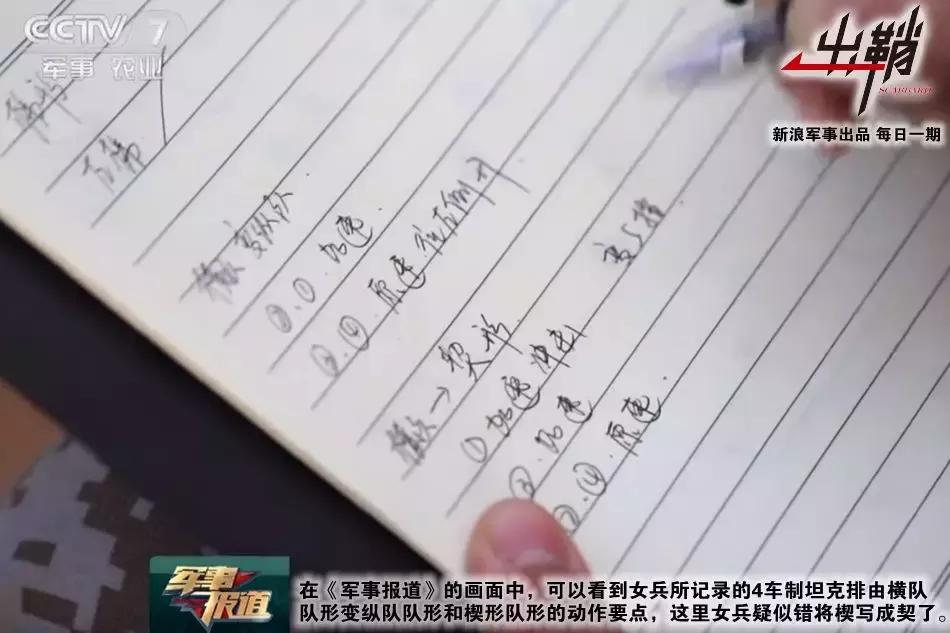 CCTV 7
军事 农业
出鞘
SCABBARD
新浪军事出品 每日一期
变纵队
②.① 加速
③.④ 原速 往左侧
→ 契形
① 加速 冲击
② 加速
③.④ 原速.
军事报道
在《军事报道》的画面中，可以看到女兵所记录的4车制坦克排由横队
队形变纵队队形和楔形队形的动作要点，这里女兵疑似错将楔写成契了。